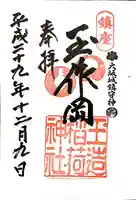 鎮座
大坂城鎮守神
玉作岡
玉造
稲荷
神社
奉拝
平成二十九年十二月九日